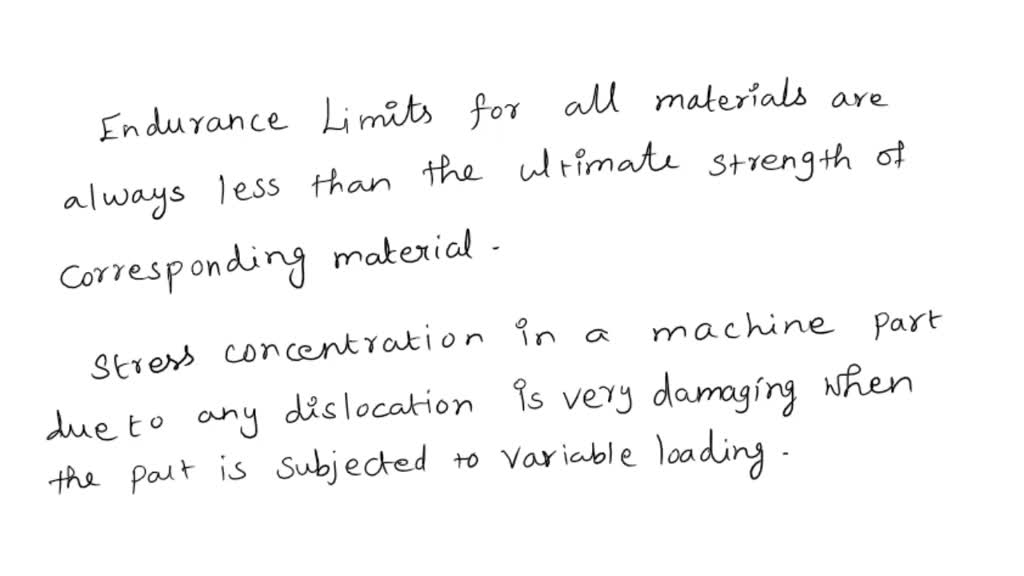 Endurance Limits for all materials are
always less than the ultimate strength of
corresponding material.
Stress concentration in a machine part
due to any dislocation is very damaging when
the part is subjected to variable loading.